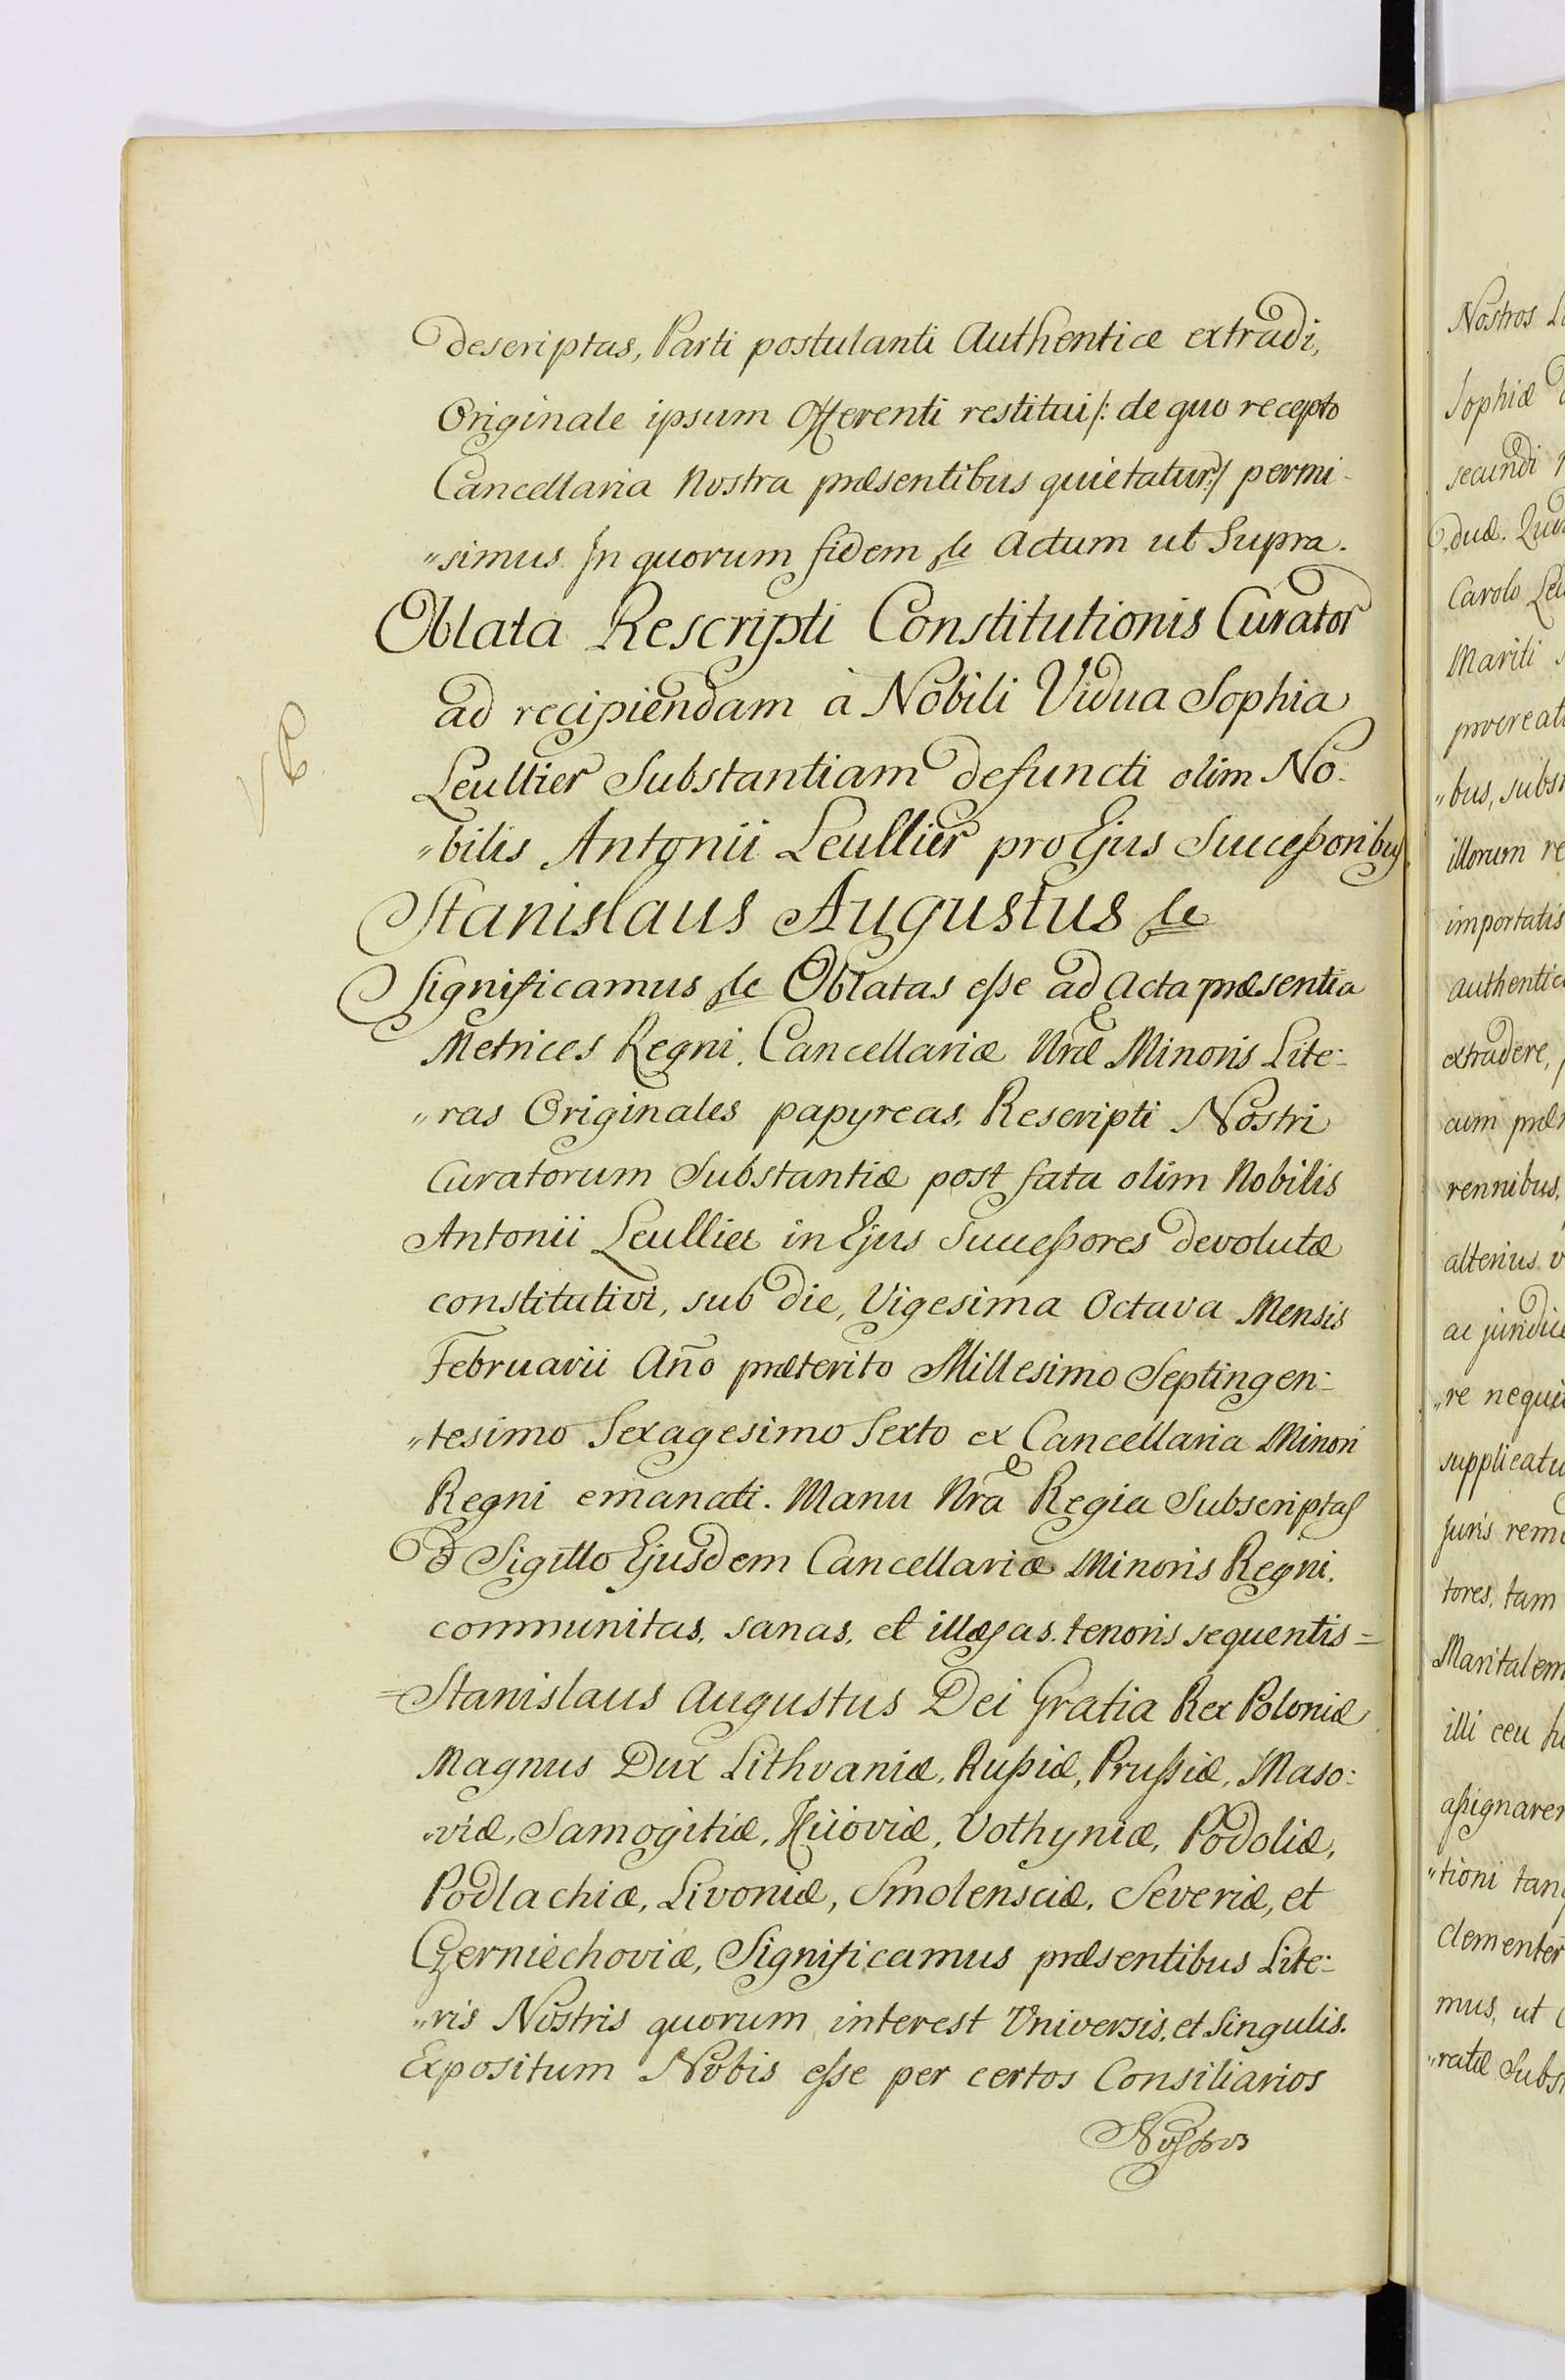 descriptas, Parti postulanti Authenticæ extradi,
Originale ipsum Offerenti restitui /: de quo recepto
Cancellaria Nostra præsentibus quietatur :/ permi-
"simus. In quorum fidem &c Actum ut Supra.
Oblata Rescripti Constitutionis Curator
ad recipiendam à Nobili Vidua Sophia
Leullier Substantiam defuncti olim No:
"bilis Antonii Leullier pro Ejus Successoribus
Stanislaus Augustus &c
Significamus &c Oblatas esse ad Acta præsentia
Metrices Regni, Cancellariæ Nræ Minoris Lite:
"ras Originales papyreas, Rescripti Nostri
Curatorum Substantiæ post fata olim Nobilis
Antonii Leullier in Ejus Successores devolutæ
constitutivi, sub die, Vigesima Octava Mensis
Februarii Año præterito Millesimo Septingen:
"tesimo Sexagesimo Sexto ex Cancellaria Minori
Regni emanati. Manu Nra Regia Subscriptas
& Sigillo Ejusdem Cancellariæ Minoris Regni.
communitas, sanas, et illæsas. tenoris sequentis =
= Stanislaus Augustus Dei Gratia Rex Poloniæ
Magnus Dux Lithvaniæ, Russiæ, Prussiæ, Maso:
"viæ, Samogitiæ, Kiioviæ, Vothyniæ, Podoliæ,
Podlachiæ, Livoniæ, Smolensciæ, Severiæ, et
Czerniechoviæ, Significamus præsentibus Lite:
"ris Nostris quorum interest Universis, et Singulis.
Expositum Nobis esse per certos Consiliarios
Nostros
Nostros
Sophiæ
secundi
duæ.
Carolo
Mariti
procreat
"bus, subst
illorum re
importatis
authentic
extradere,
cum
rennibus,
alterius
ac juridic
"re nequi
supplicatu
juris rem
tores, tam
Maritalem
illi ceu
assignare
"tioni tan
Clementer
mus, ut
"ratæ Subs